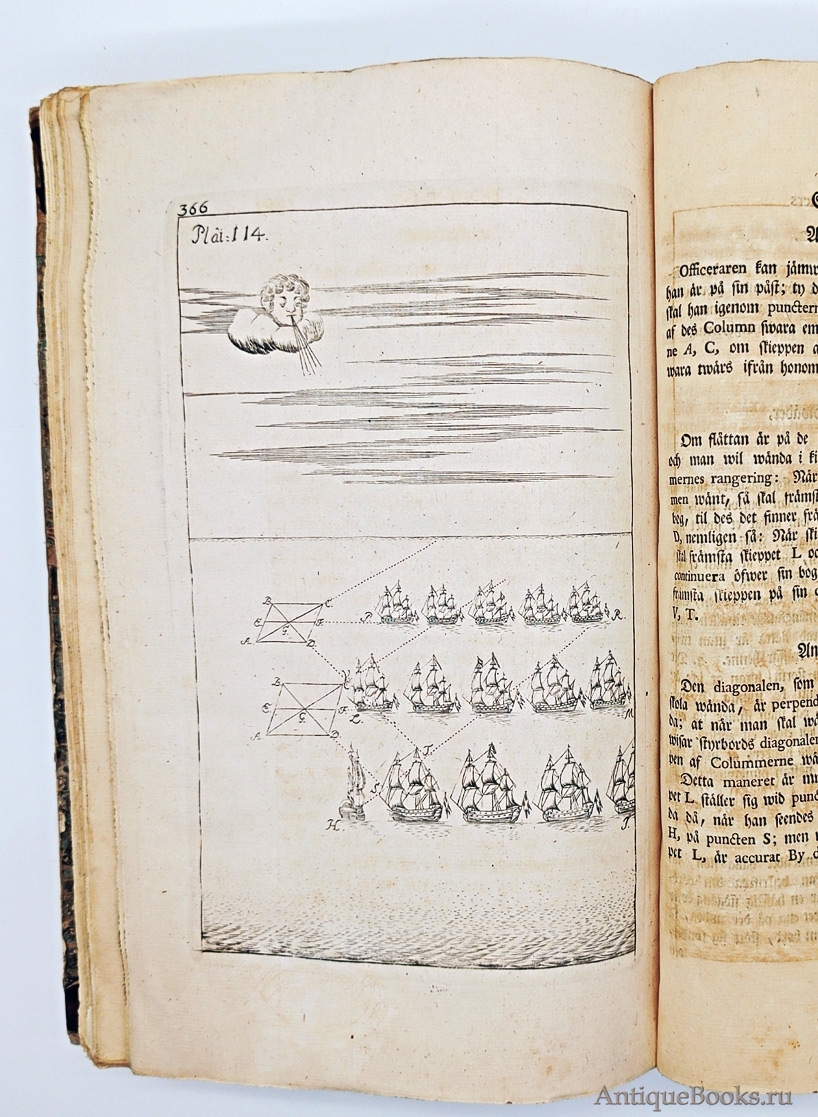 366
Plåt: 114.
B C
E F P R
G
A D
B
E F L M
G
A D
T
S
H
Officeraren kan jämw
han är på sin påst; ty d
skal han igenom puncter
af des Column swara em
ne A, C, om skieppen
wara twärs ifrån honom
Om flåttan är på de
och man wil wända i
mernes rangering: När
men wänt, så skal främst
bog, til des det finner
D, nemligen så: När
främsta skieppet L
continuera öfwer sin bog
främsta skieppen på sin
V, T.
An
Den diagonalen, som
skola wända, är perpend
da; at når man skal
wisar styrbords diagonalen
pen af Colummerne
Detta maneret är
pet L ställer sig wid punc
da då, når han seendes
H, på puncten S; men
pet L, är accurat By
AntiqueBooks.ru